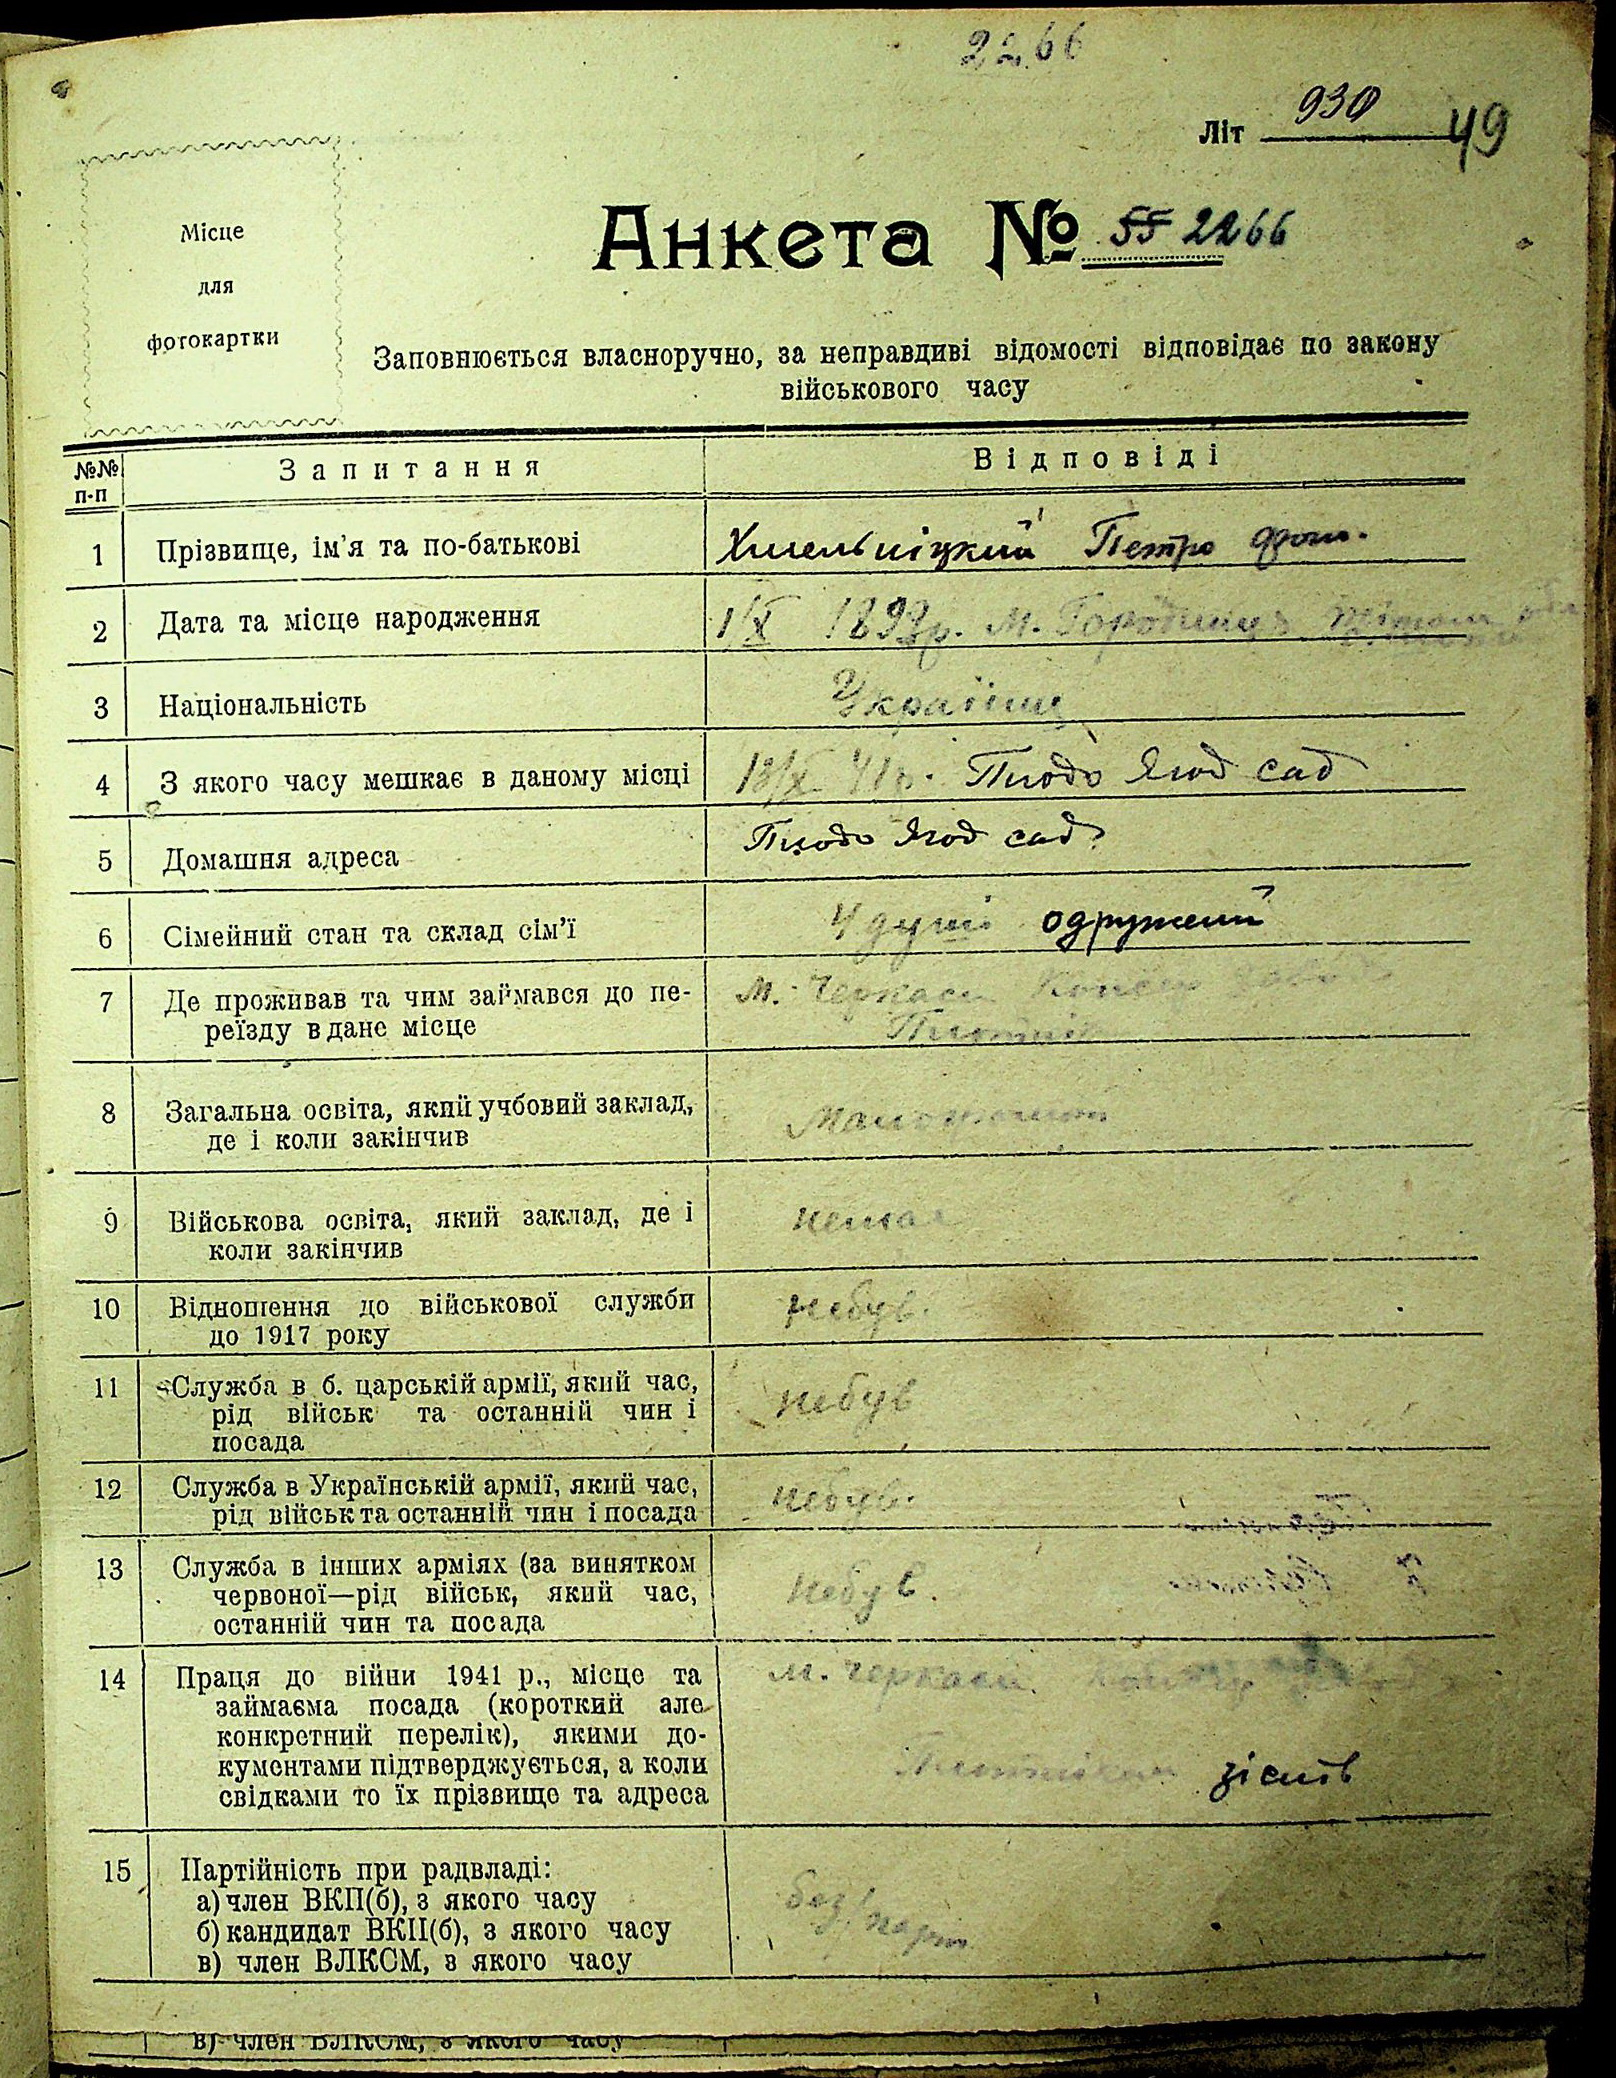 2266
Літ 930 49
Місце
для
фотокартки
Анкета № 55 2266
Заповнюється власноручно, за неправдиві відомості відповідає по закону
військового часу
№№ п-п Запитання Відповіді
1 Прізвище, ім'я та по-батькові Хмельніцкий Петро
2 Дата та місце народження 1/X 1899р. м. Городниця
3 Національність Українец
4 З якого часу мешкає в даному місці 13/X 41р. Плодо Ягод сад
5 Домашня адреса Плодо Ягод сад
6 Сімейний стан та склад сім'ї 4 душі одружений
7 Де проживав та чим займався до пе- м. Черкаси
реїзду в дане місце
8 Загальна освіта, який учбовий заклад,
де і коли закінчив
9 Військова освіта, який заклад, де і немає
коли закінчив
10 Відношення до військової служби небув.
до 1917 року
11 Служба в б. царській армії, який час, небув
рід військ та останній чин і
посада
12 Служба в Українській армії, який час, небув.
рід військ та останній чин і посада
13 Служба в інших арміях (за винятком небув.
червоної—рід військ, який час,
останній чин та посада
14 Праця до війни 1941 р., місце та м. Черкаси
займаєма посада (короткий але
конкретний перелік), якими до-
кументами підтверджується, а коли
свідками то їх прізвище та адреса
15 Партійність при радвладі: без/парт
а) член ВКП(б), з якого часу
б) кандидат ВКП(б), з якого часу
в) член ВЛКСМ, з якого часу
в) член ВЛКСМ, з якого часу